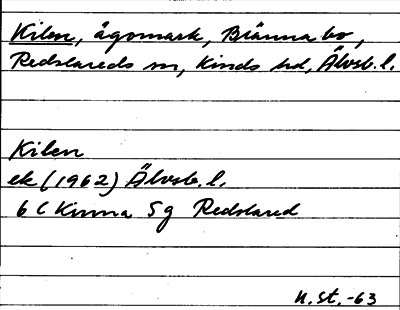 Kilen, ägomark, Bränna bo,
Redslareds sn, Kinds hd, Älvsb. l.
Kilen
ek (1962) Älvsb. l.
6 C Kinna 5 g Redslared
N. St. -63